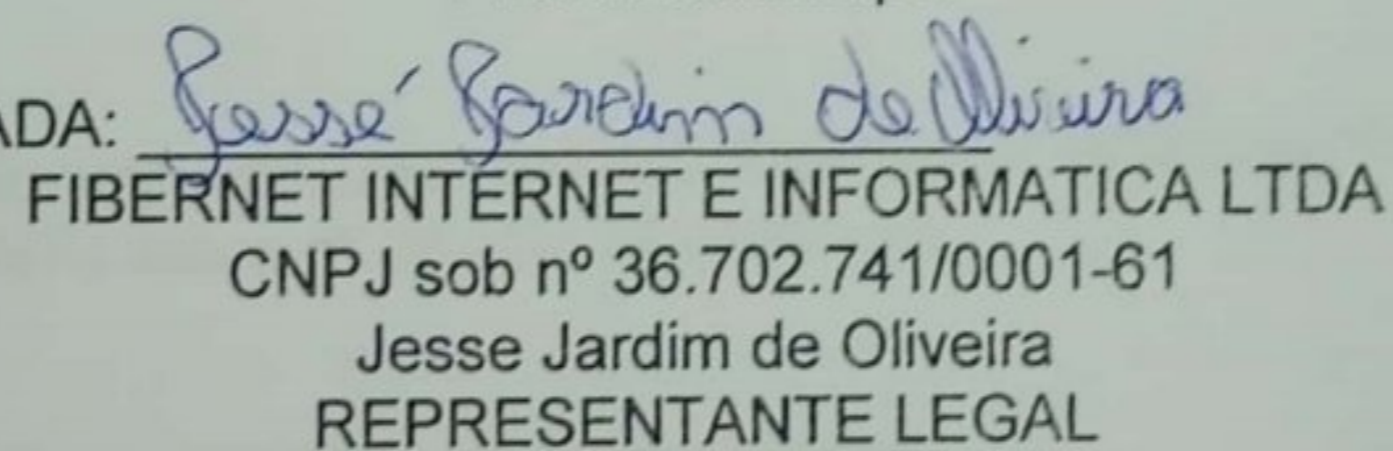 ADA: Jessé Jardim de Oliveira
FIBERNET INTERNET E INFORMATICA LTDA
CNPJ sob nº 36.702.741/0001-61
Jesse Jardim de Oliveira
REPRESENTANTE LEGAL